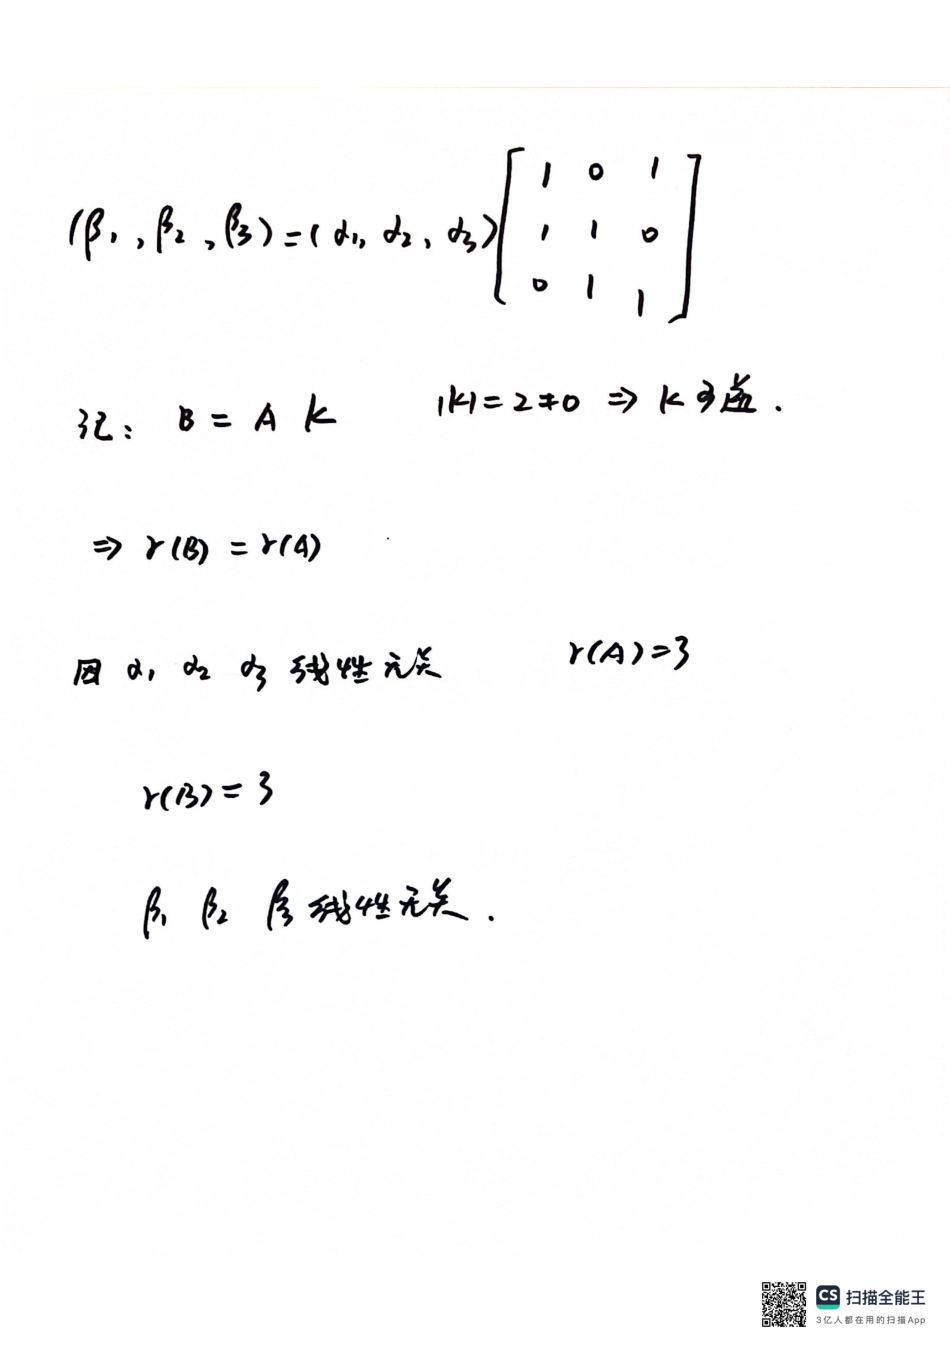 (β₁, β₂, β₃) = (α₁, α₂, α₃) [1 0 1
1 1 0
0 1 1]
记: B = A K |K| = 2 ≠ 0 ⇒ K 可逆.
⇒ r(B) = r(A)
因 α₁ α₂ α₃ 线性无关 r(A) = 3
r(B) = 3
β₁ β₂ β₃ 线性无关.
CS 扫描全能王
3亿人都在用的扫描App